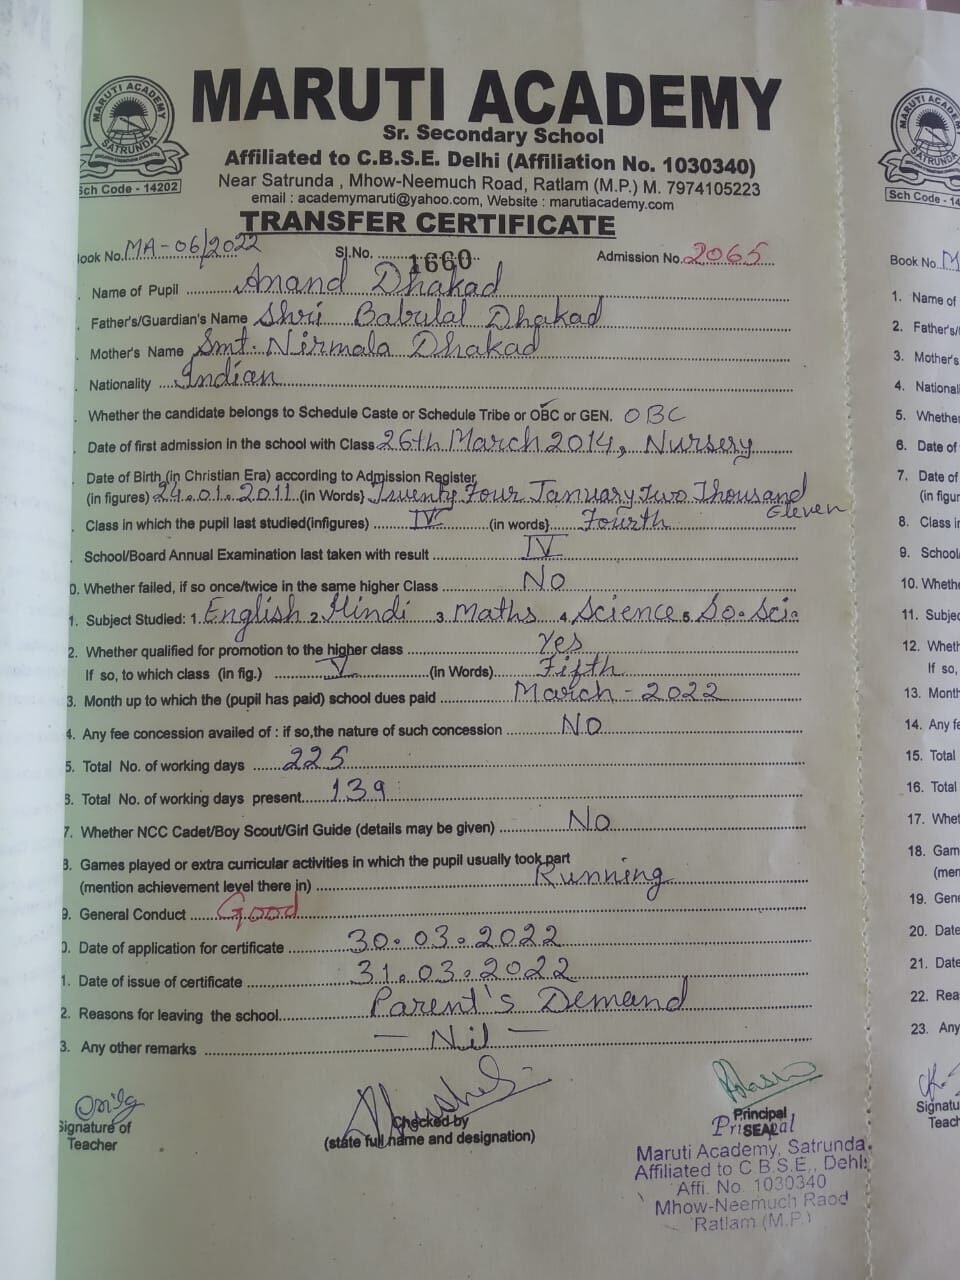 MARUTI ACADEMY
SATRUNDA
Sch Code - 14202
MARUTI ACADEMY
Sr. Secondary School
Affiliated to C.B.S.E. Delhi (Affiliation No. 1030340)
Near Satrunda , Mhow-Neemuch Road, Ratlam (M.P.) M. 7974105223
email : academymaruti@yahoo.com, Website : marutiacademy.com
TRANSFER CERTIFICATE
ook No. MA-06/2022 Sl.No. 1660 Admission No. 2065
. Name of Pupil Anand Dhakad
. Father's/Guardian's Name Shri Babulal Dhakad
. Mother's Name Smt. Nirmala Dhakad
. Nationality Indian
. Whether the candidate belongs to Schedule Caste or Schedule Tribe or OBC or GEN. OBC
. Date of first admission in the school with Class 26th March 2014, Nursery
. Date of Birth (in Christian Era) according to Admission Register
(in figures) 24.01.2011 (in Words) Twenty Four January Two Thousand Eleven
. Class in which the pupil last studied(infigures) IV (in words) Fourth
. School/Board Annual Examination last taken with result IV
0. Whether failed, if so once/twice in the same higher Class No
1. Subject Studied: 1. English 2. Hindi 3. Maths 4. Science 5. So. Sci.
2. Whether qualified for promotion to the higher class Yes
If so, to which class (in fig.) V (in Words) Fifth
3. Month up to which the (pupil has paid) school dues paid March - 2022
4. Any fee concession availed of : if so,the nature of such concession NO
5. Total No. of working days 225
6. Total No. of working days present 139
7. Whether NCC Cadet/Boy Scout/Girl Guide (details may be given) No
8. Games played or extra curricular activities in which the pupil usually took part
(mention achievement level there in) Running
9. General Conduct Good
0. Date of application for certificate 30.03.2022
1. Date of issue of certificate 31.03.2022
2. Reasons for leaving the school Parent's Demand
3. Any other remarks - Nil -
Signature of
Teacher
Checked by
(state full name and designation)
Principal
SEAL
Principal
Maruti Academy, Satrunda.
Affiliated to C.B.S.E., Delhi
Affi. No. 1030340
Mhow-Neemuch Raod
Ratlam (M.P.)
MARUTI ACADEM
SATRUNDA
Sch Code - 14
Book No. M
1. Name of
2. Father's/
3. Mother's
4. National
5. Whether
6. Date of
7. Date of
(in figur
8. Class in
9. School/
10. Whethe
11. Subjec
12. Wheth
If so,
13. Month
14. Any fe
15. Total
16. Total
17. Whet
18. Gam
(men
19. Gene
20. Date
21. Date
22. Rea
23. Any
Signatu
Teach